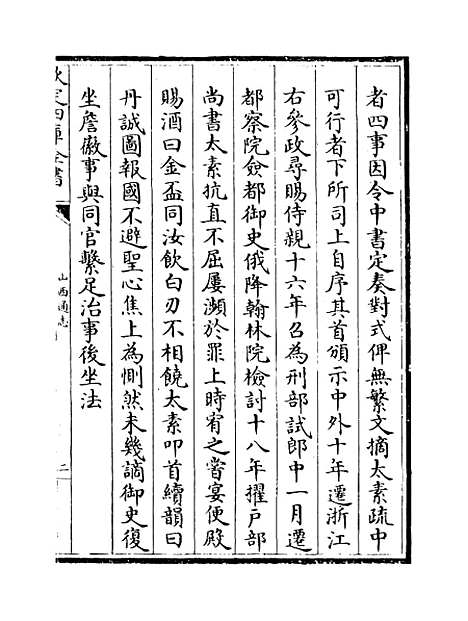 者四事因令中書定奏對式俾無繁文摘太素疏中
可行者下所司上自序其首頒示中外十年遷浙江
右參政尋賜侍親十六年召為刑部試郎中一月遷
都察院僉都御史俄降翰林院檢討十八年擢戶部
尚書太素抗直不屈屢瀕於罪上時宥之嘗宴便殿
賜酒曰金盃同汝飲白刃不相饒太素叩首續韻曰
丹誠圖報國不避聖心焦上為惻然未幾謫御史復
坐詹徽事與同官繫足治事後坐法
欽定四庫全書
山西通志
二